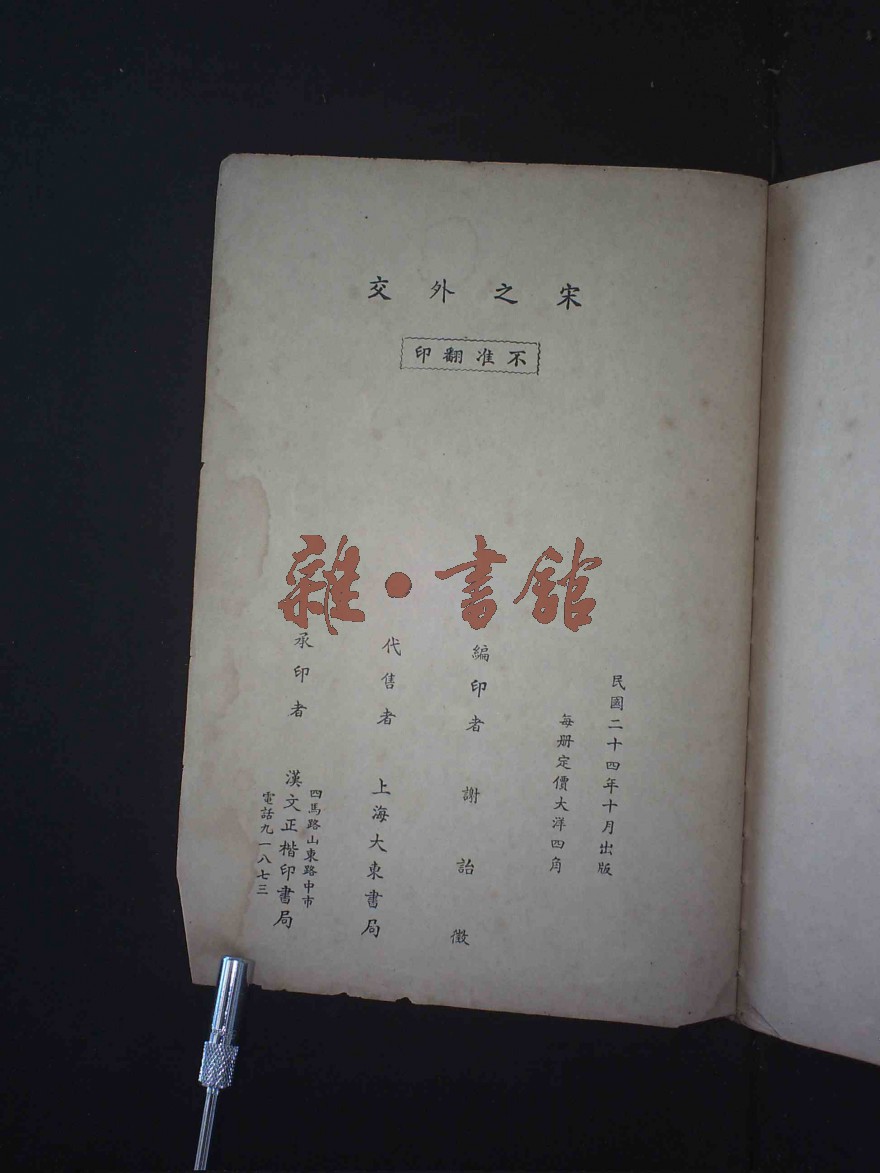 宋之外交
不准翻印
雜·書館
民國二十四年十月出版
每册定價大洋四角
編印者 謝詒徵
代售者 上海大東書局
承印者 漢文正楷印書局
四馬路山東路中市
電話九一八七三